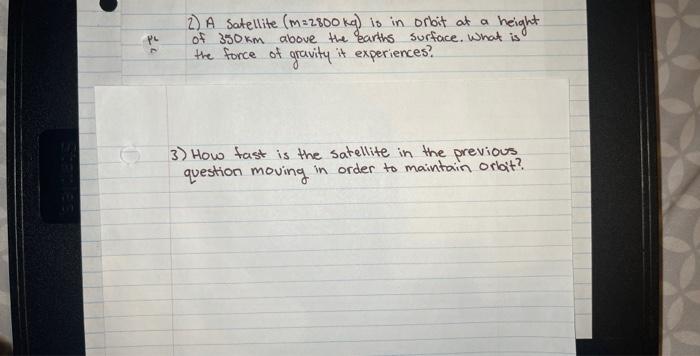 2) A Satellite (m=2800kg) is in orbit at a height
of 350km above the earths surface. What is
the force of gravity it experiences?
3) How fast is the satellite in the previous
question moving in order to maintain orbit?